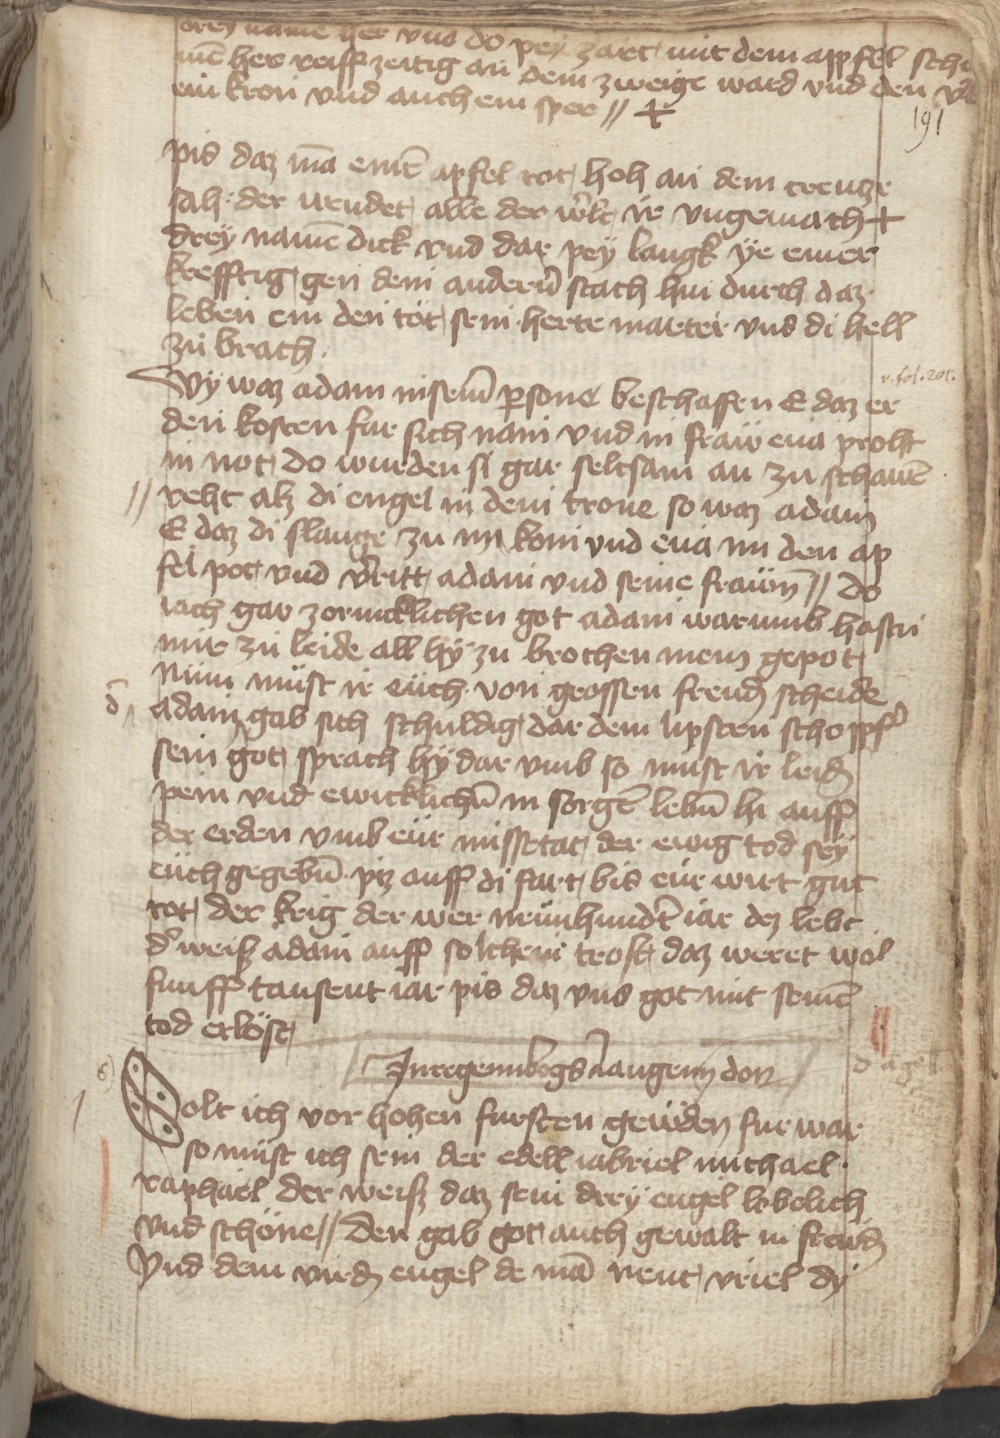 drey name her vnd do pey zart mit dem appfel scho
men her reiff zeitig an dem zweige ward vnd den
ein kron vnd auch ein sper // +
191
pis daz mā einē apfel rot hoh an dem creucze
sah der wendet alle der w̄lt ir vngemach +
drey namē dick vnd dar pey langk ye einer
krefftig gen dem anderñ stach hin durch daz
leben ein den tot sein herte marter vns di hell
zu brach
v. fol. 201.
Wy waz adam in seim̄ p̱sone beschafen E daz er
den kosten fur sich nam vnd in fraw eua proht
in not do wurden si gar seltsam an zu schauē
// reht alz di engel in dem trone so waz adam
E daz di slange zu im kom vnd eua im den ap
fel pot vnd v̄ritt adam vnd seine frawn // do
rach gar zornicklichen got adam warumb hastu
mir zu leide all hy zu brochen mein gepot
Nüm müst ir euch von grossen freud scheide
adam gab sich schuldig dar dem lipsten schoppf̄
sein got sprach hy dar vmb so must ir leid
pein vnd ewicklichn̄ in sorgē lebn̄ hi auff
der erden vmb eur missetat der ewig tod sey
euch gegebn̄ ytz auff di fart bis eur wirt gut
rot der krig der wer neunhundt̄ iar dez lebt
d̄ weiß adam auff solchem trost daz weret wol
funff tausent iar pis daz vns got mit seinē
tod erlöst
In regennbogs langenn don
Solt ich vor hohen fursten gewden fur war
so müst ich sein der edell iabriel michael
raphael der weiß daz sein drey engel lobelich
vnd schöne // Den gab got auch gewalt in freud
Vnd dem vird engel de mā nent vriel dy